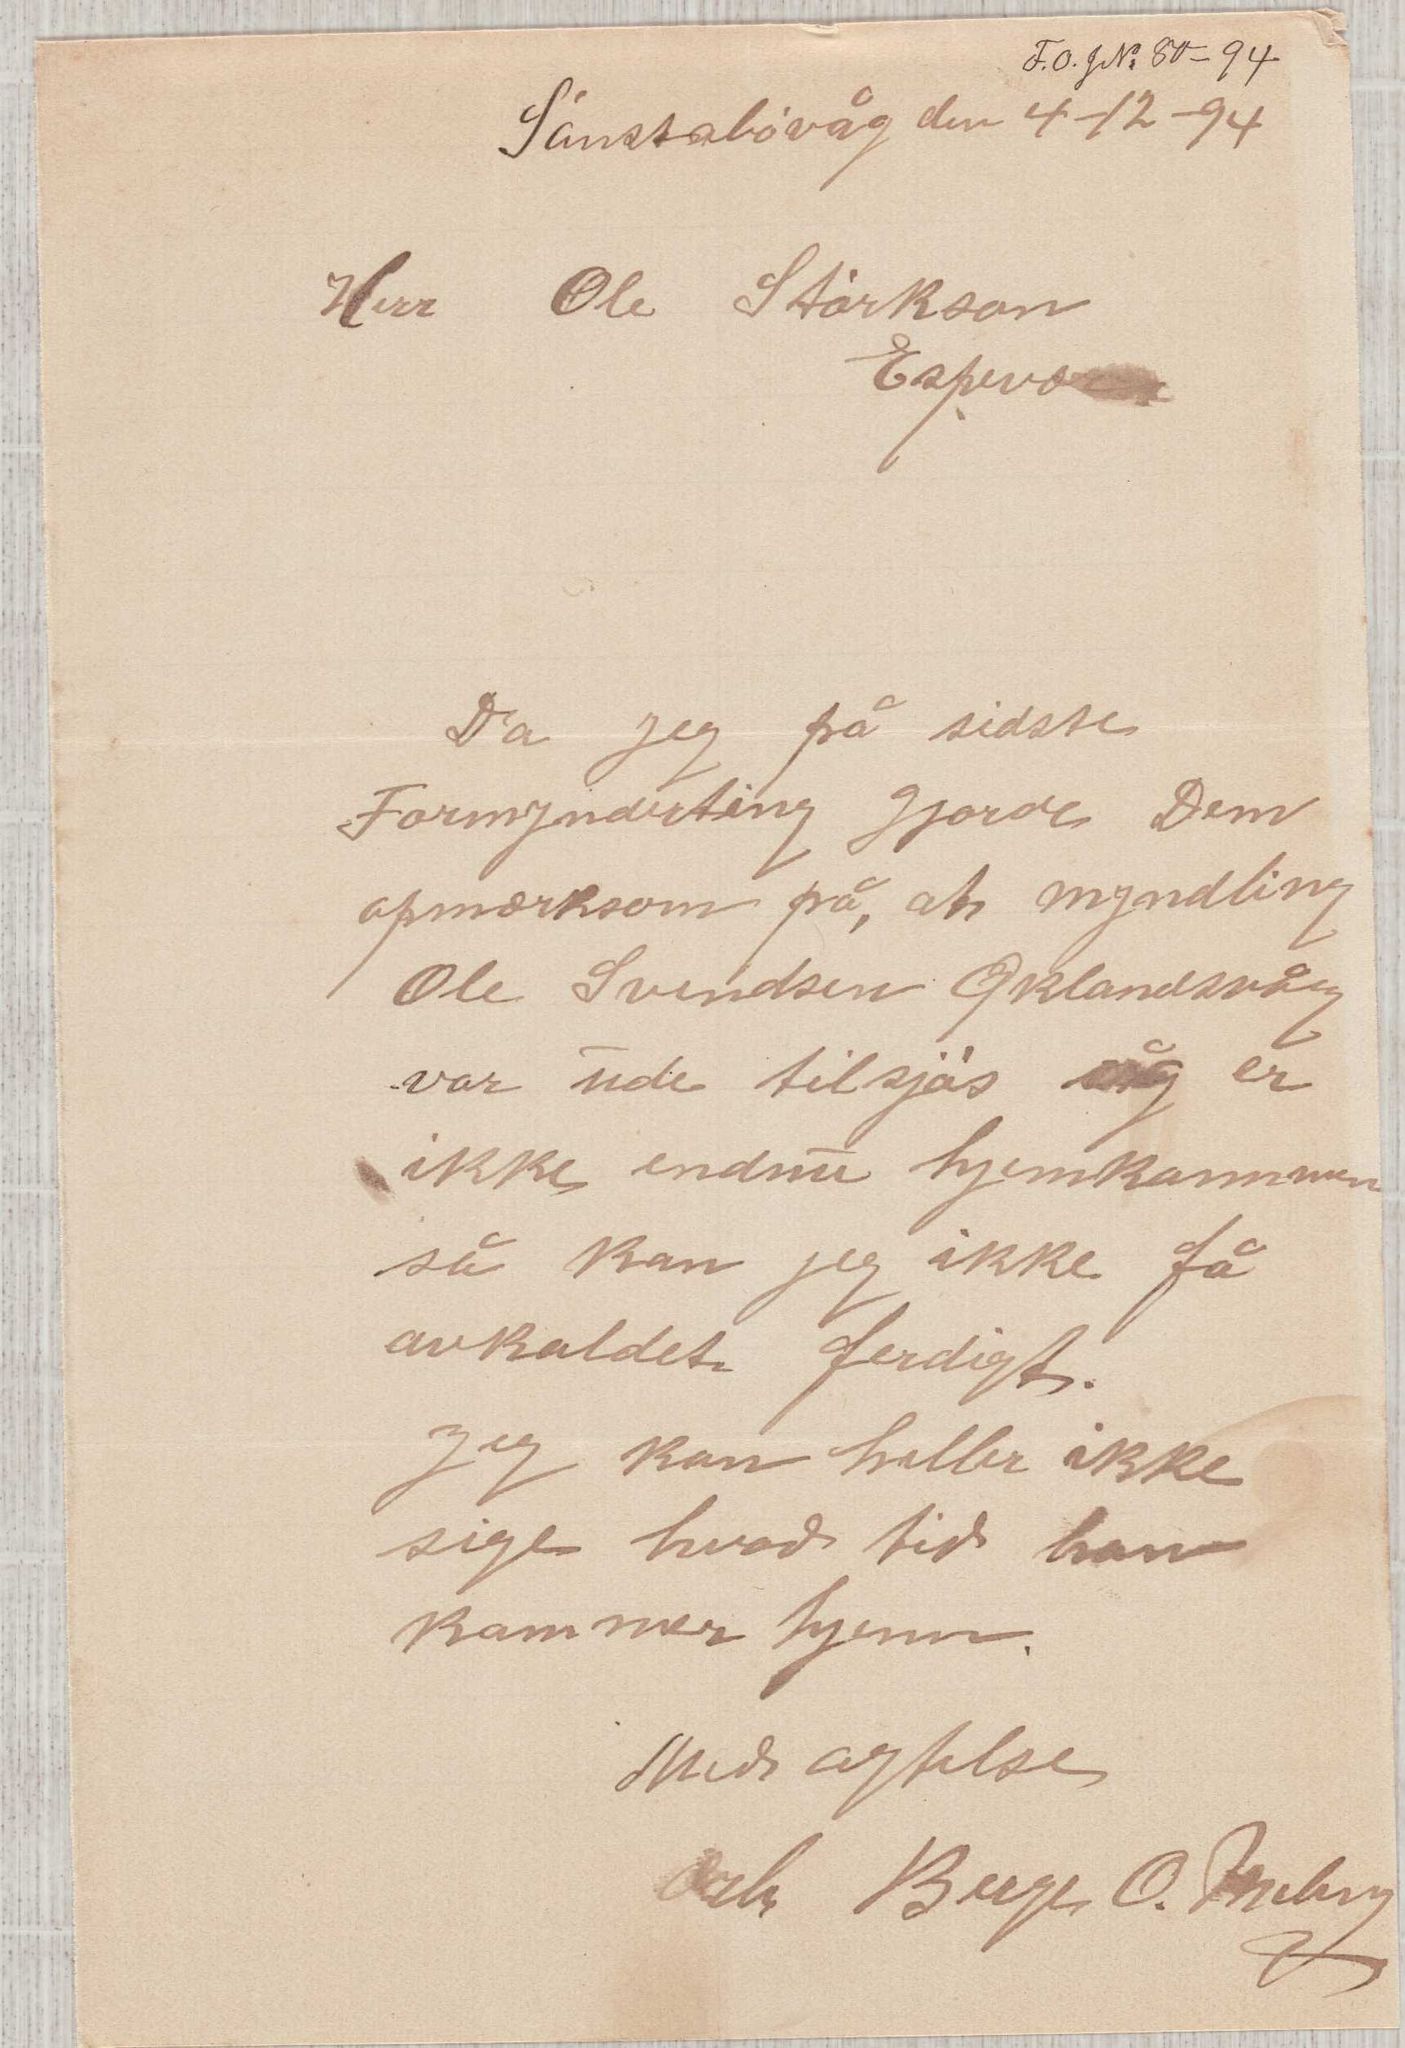 F.O.JN: 80-94
Sönstabövåg den 4-12-94
Herr Ole Störkson
Espevæ
Da jeg på sidste
Formynderting gjorde Dem
opmærksom på, at myndling
Ole Svendsen Øklandsvåg
var ude tilsjøs og er
ikke endnu hjemkommen
så kan jeg ikke få
avkaldet ferdigt.
Jeg kan heller ikke
sige hvad tid han
kommer hjem.
Med agtelse
Berge O.